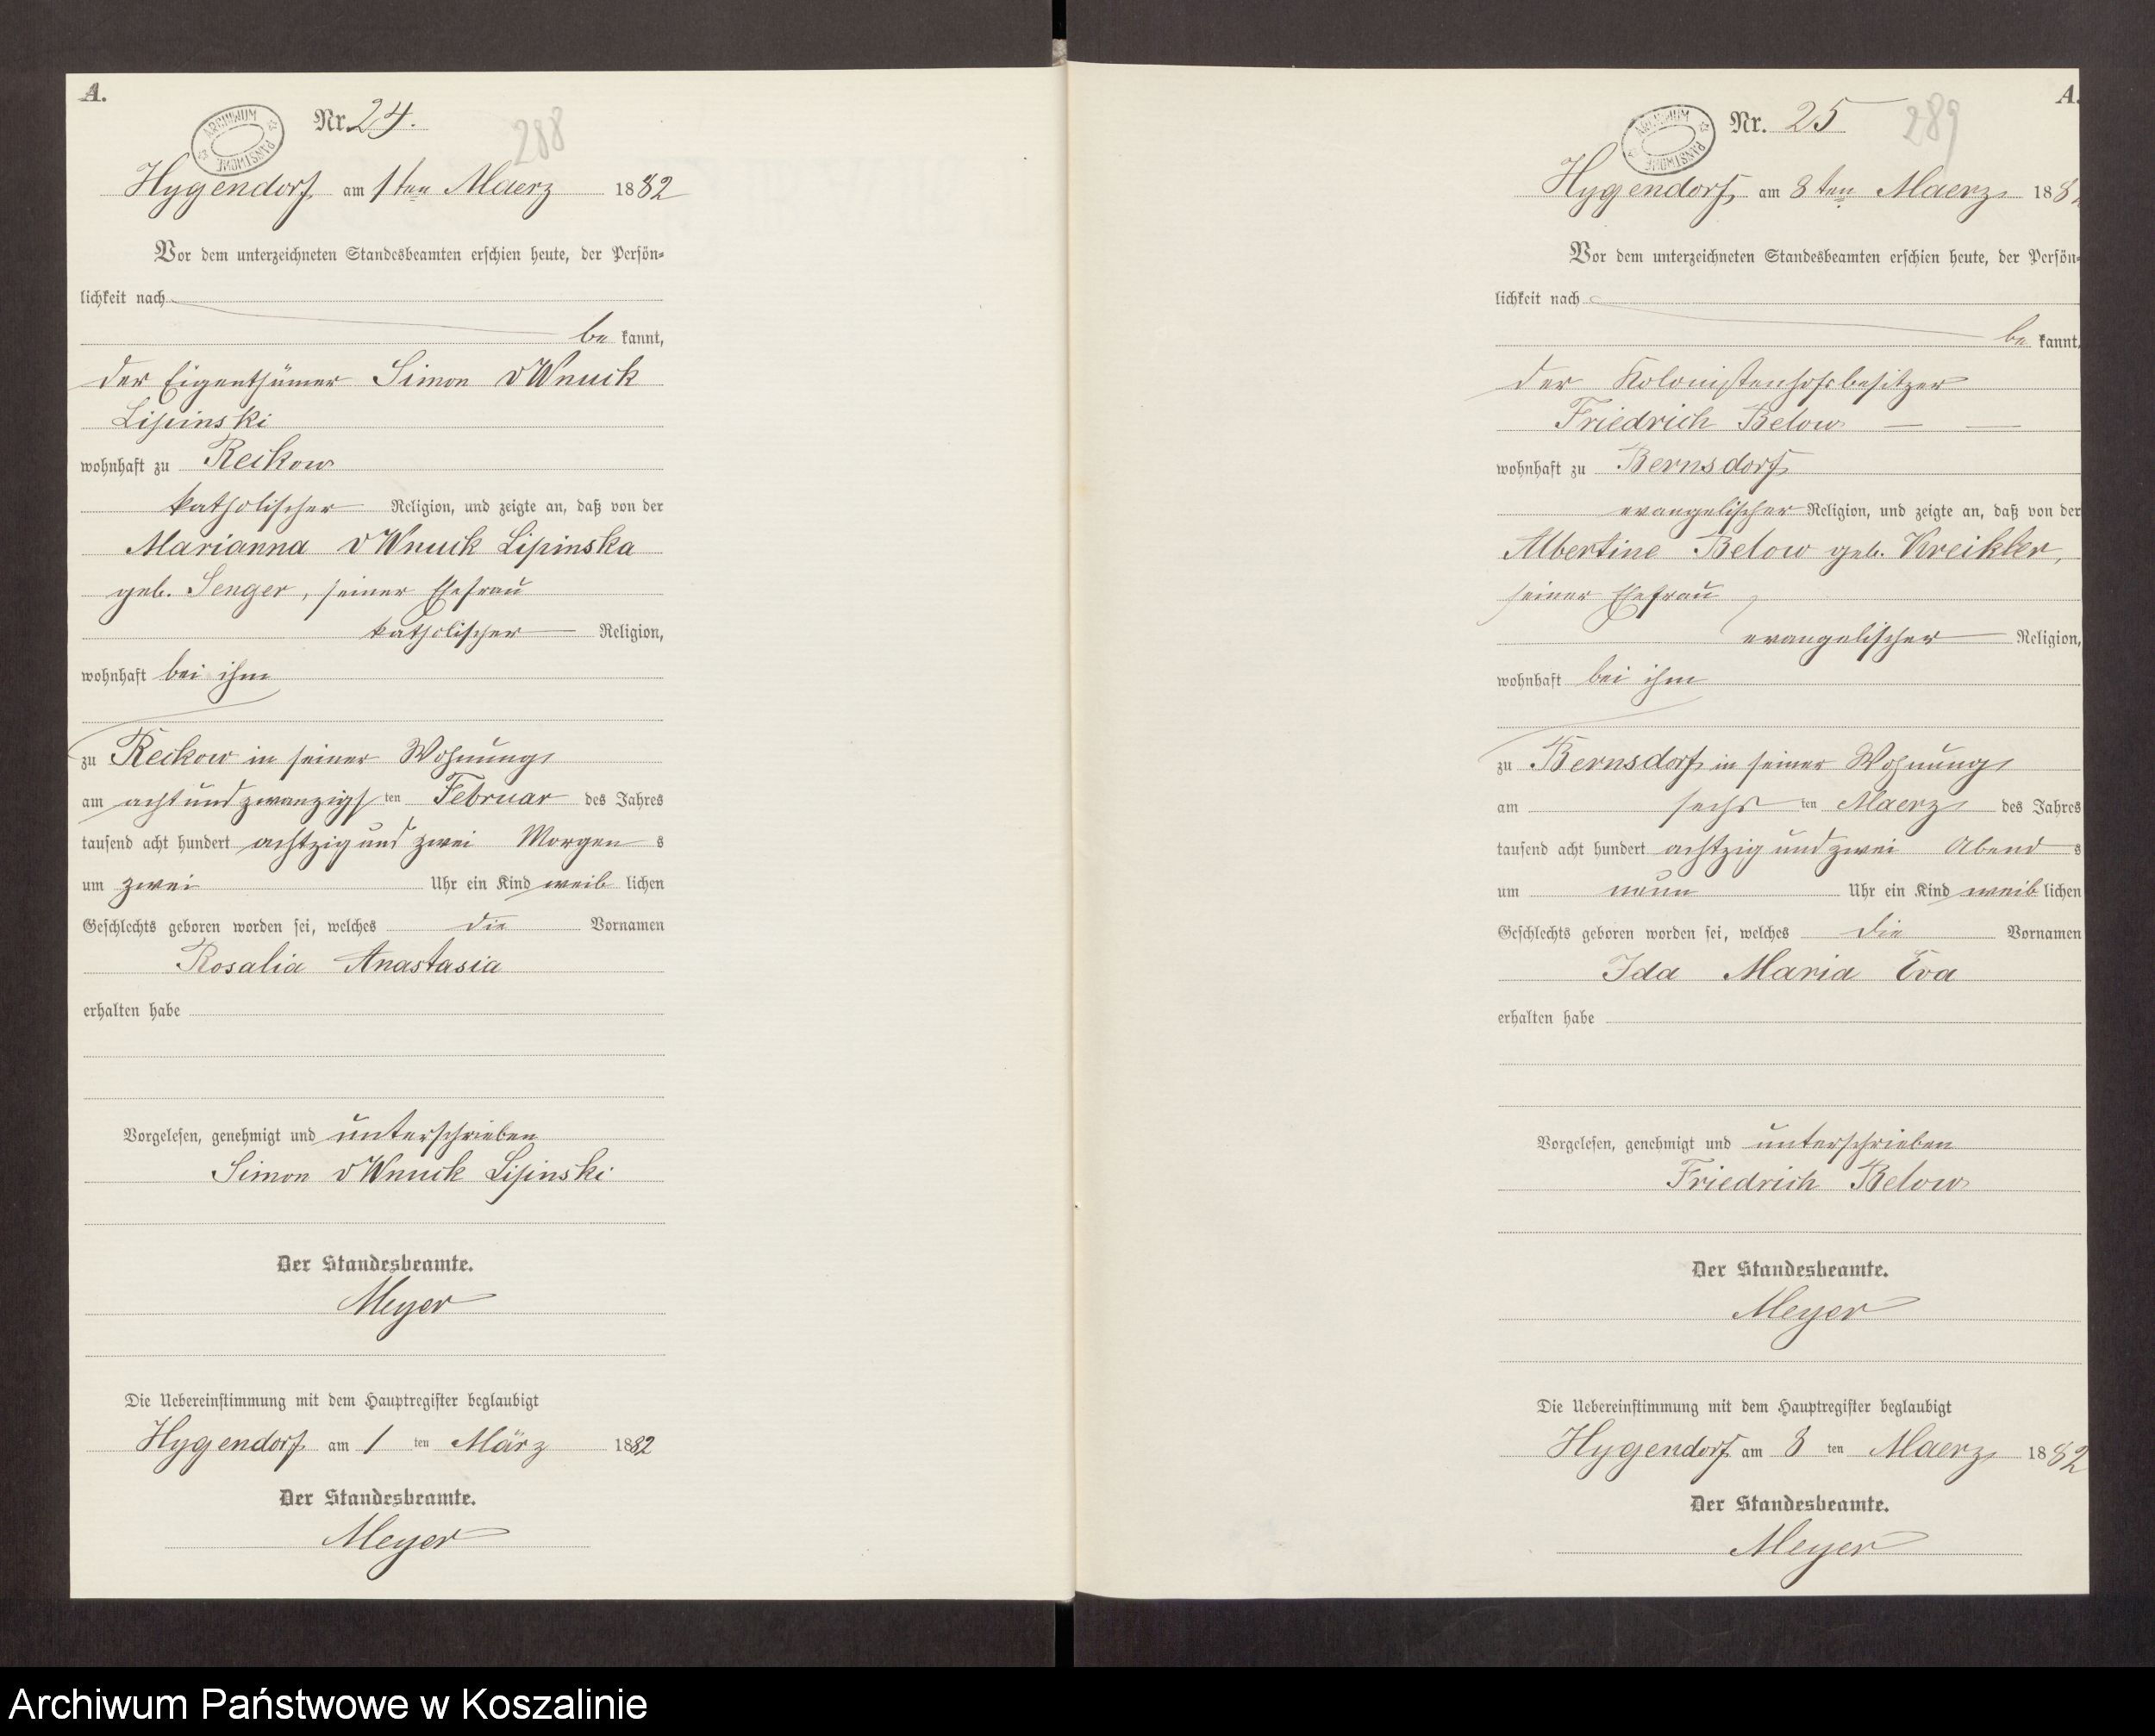 A.
ARCHIWUM PAŃSTWOWE
Nr. 24.
288
Hygendorf am 1ten Maerz 1882
Vor dem unterzeichneten Standesbeamten erschien heute, der Persön-
lichkeit nach
be kannt,
der Eigenthümer Simon v Wnuck
Lipinski
wohnhaft zu Reckow
katholischer Religion, und zeigte an, daß von der
Marianna v Wnuck Lipinska
geb. Senger, seiner Ehefrau
katholischer Religion,
wohnhaft bei ihm
zu Reckow in seiner Wohnung
am acht und zwanzigs ten Februar des Jahres
tausend acht hundert achtzig und zwei Morgen s
um zwei Uhr ein Kind weib lichen
Geschlechts geboren worden sei, welches die Vornamen
Rosalia Anastasia
erhalten habe
Vorgelesen, genehmigt und unterschrieben
Simon v Wnuck Lipinski
Der Standesbeamte.
Meyer
Die Uebereinstimmung mit dem Hauptregister beglaubigt
Hygendorf am 1 ten März 1882
Der Standesbeamte.
Meyer
A.
ARCHIWUM PAŃSTWOWE
Nr. 25
289
Hygendorf am 8ten Maerz 188
Vor dem unterzeichneten Standesbeamten erschien heute, der Persön-
lichkeit nach
be kannt,
der Kolonistenhofsbesitzer
Friedrich Below
wohnhaft zu Bernsdorf
evangelischer Religion, und zeigte an, daß von der
Albertine Below geb. Kreikler,
seiner Ehefrau
evangelischer Religion,
wohnhaft bei ihm
zu Bernsdorf in seiner Wohnung
am sechs ten Maerz des Jahres
tausend acht hundert achtzig und zwei Abend s
um neun Uhr ein Kind weib lichen
Geschlechts geboren worden sei, welches die Vornamen
Ida Maria Eva
erhalten habe
Vorgelesen, genehmigt und unterschrieben
Friedrich Below
Der Standesbeamte.
Meyer
Die Uebereinstimmung mit dem Hauptregister beglaubigt
Hygendorf am 8 ten Maerz 1882
Der Standesbeamte.
Meyer
Archiwum Państwowe w Koszalinie